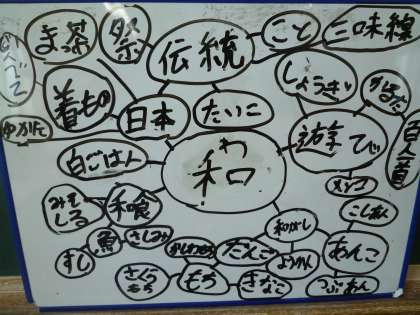 まっ茶
祭
伝統
こと
三味線
着もの
しょうぎ
かるた
百人一首
ゆかた
日本
たいこ
遊び
白ごはん
わ
和
メンコ
みそしる
和喰
和がし
こしあん
魚
さしみ
かしわもち
だんご
ようかん
あんこ
すし
さくらもち
もち
きなこ
つぶあん